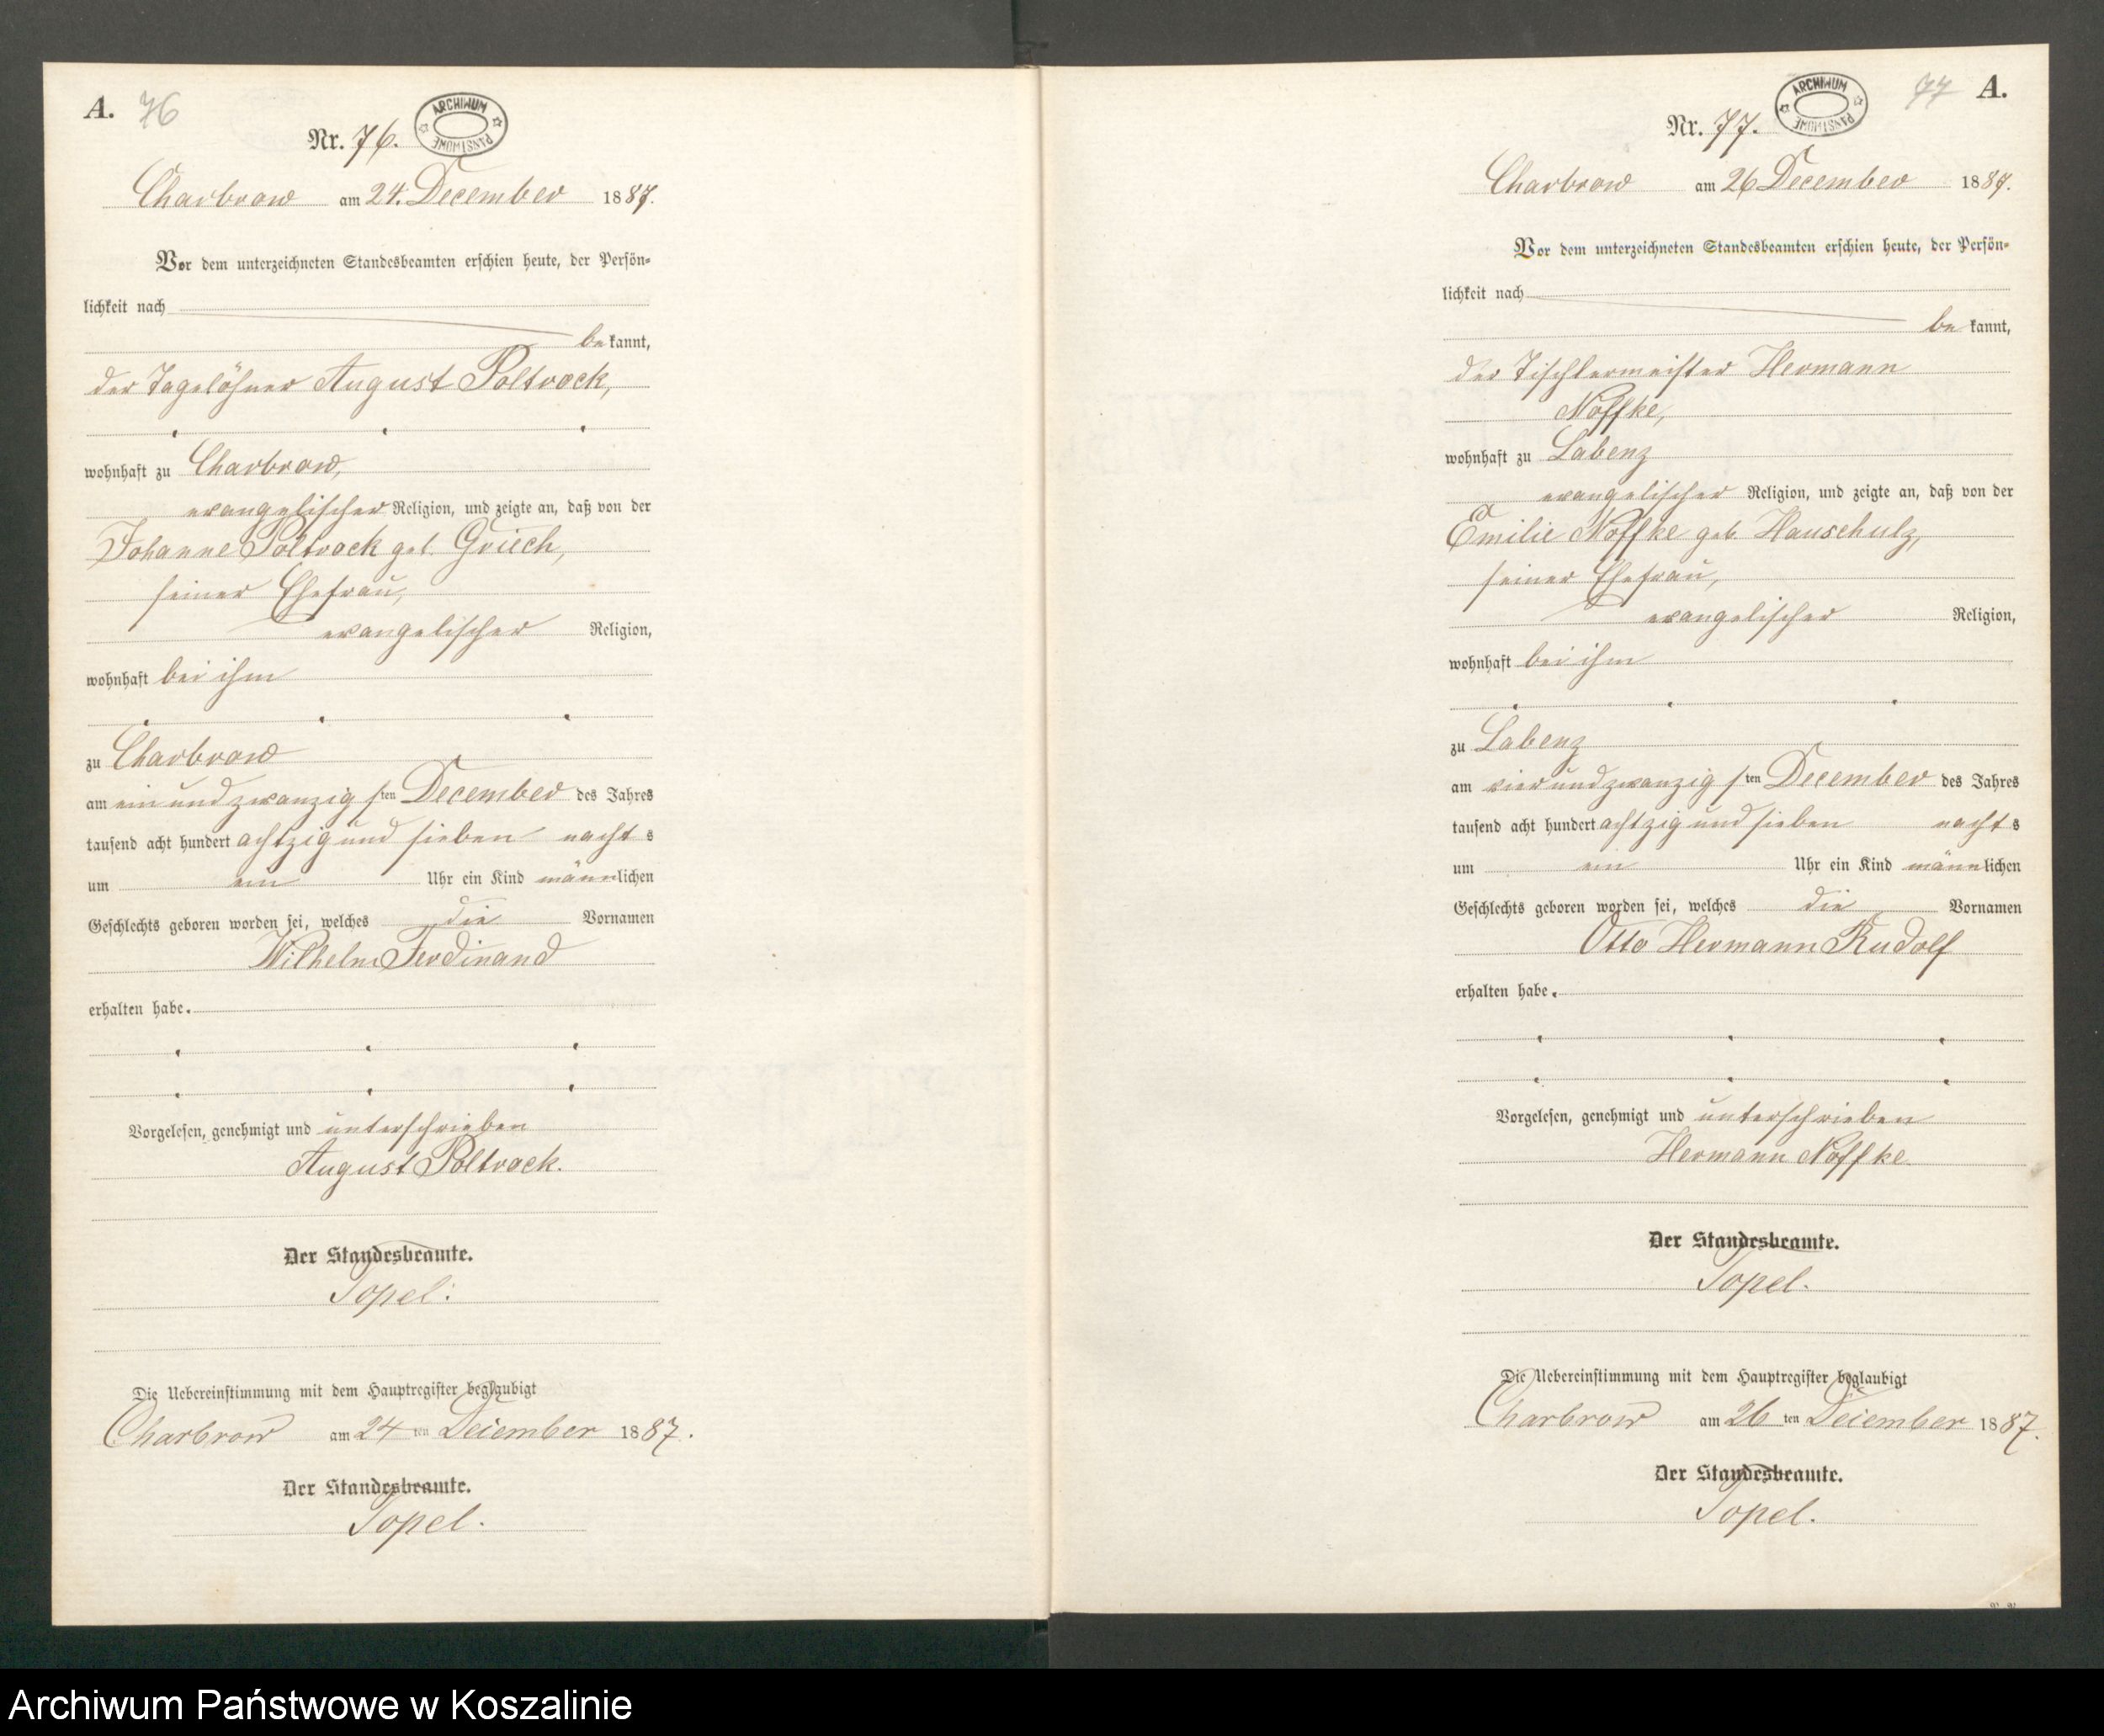 A. 76
ARCHIWUM PAŃSTWOWE
Nr. 76.
Charbrow am 24. December 1887.
Vor dem unterzeichneten Standesbeamten erschien heute, der Persön-
lichkeit nach
bekannt,
der Tagelöhner August Poltrock,
wohnhaft zu Charbrow,
evangelischer Religion, und zeigte an, daß von der
Johanne Poltrock geb. Griech,
seiner Ehefrau,
evangelischer Religion,
wohnhaft bei ihm
zu Charbrow
am ein und zwanzigsten December des Jahres
tausend acht hundert achtzig und sieben nachts
um ein Uhr ein Kind männlichen
Geschlechts geboren worden sei, welches die Vornamen
Wilhelm Ferdinand
erhalten habe.
Vorgelesen, genehmigt und unterschrieben
August Poltrock.
Der Standesbeamte.
Topel.
Die Uebereinstimmung mit dem Hauptregister beglaubigt
Charbrow am 24ten December 1887.
Der Standesbeamte.
Topel.
77 A.
ARCHIWUM PAŃSTWOWE
Nr. 77.
Charbrow am 26 December 1887.
Vor dem unterzeichneten Standesbeamten erschien heute, der Persön-
lichkeit nach
bekannt,
der Tischlermeister Hermann
Noffke,
wohnhaft zu Labenz
evangelischer Religion, und zeigte an, daß von der
Emilie Noffke geb. Hauschulz,
seiner Ehefrau,
evangelischer Religion,
wohnhaft bei ihm
zu Labenz
am vier und zwanzigsten December des Jahres
tausend acht hundert achtzig und sieben nachts
um ein Uhr ein Kind männlichen
Geschlechts geboren worden sei, welches die Vornamen
Otto Hermann Rudolf
erhalten habe.
Vorgelesen, genehmigt und unterschrieben
Hermann Noffke.
Der Standesbeamte.
Topel.
Die Uebereinstimmung mit dem Hauptregister beglaubigt
Charbrow am 26ten December 1887.
Der Standesbeamte.
Topel.
Archiwum Państwowe w Koszalinie